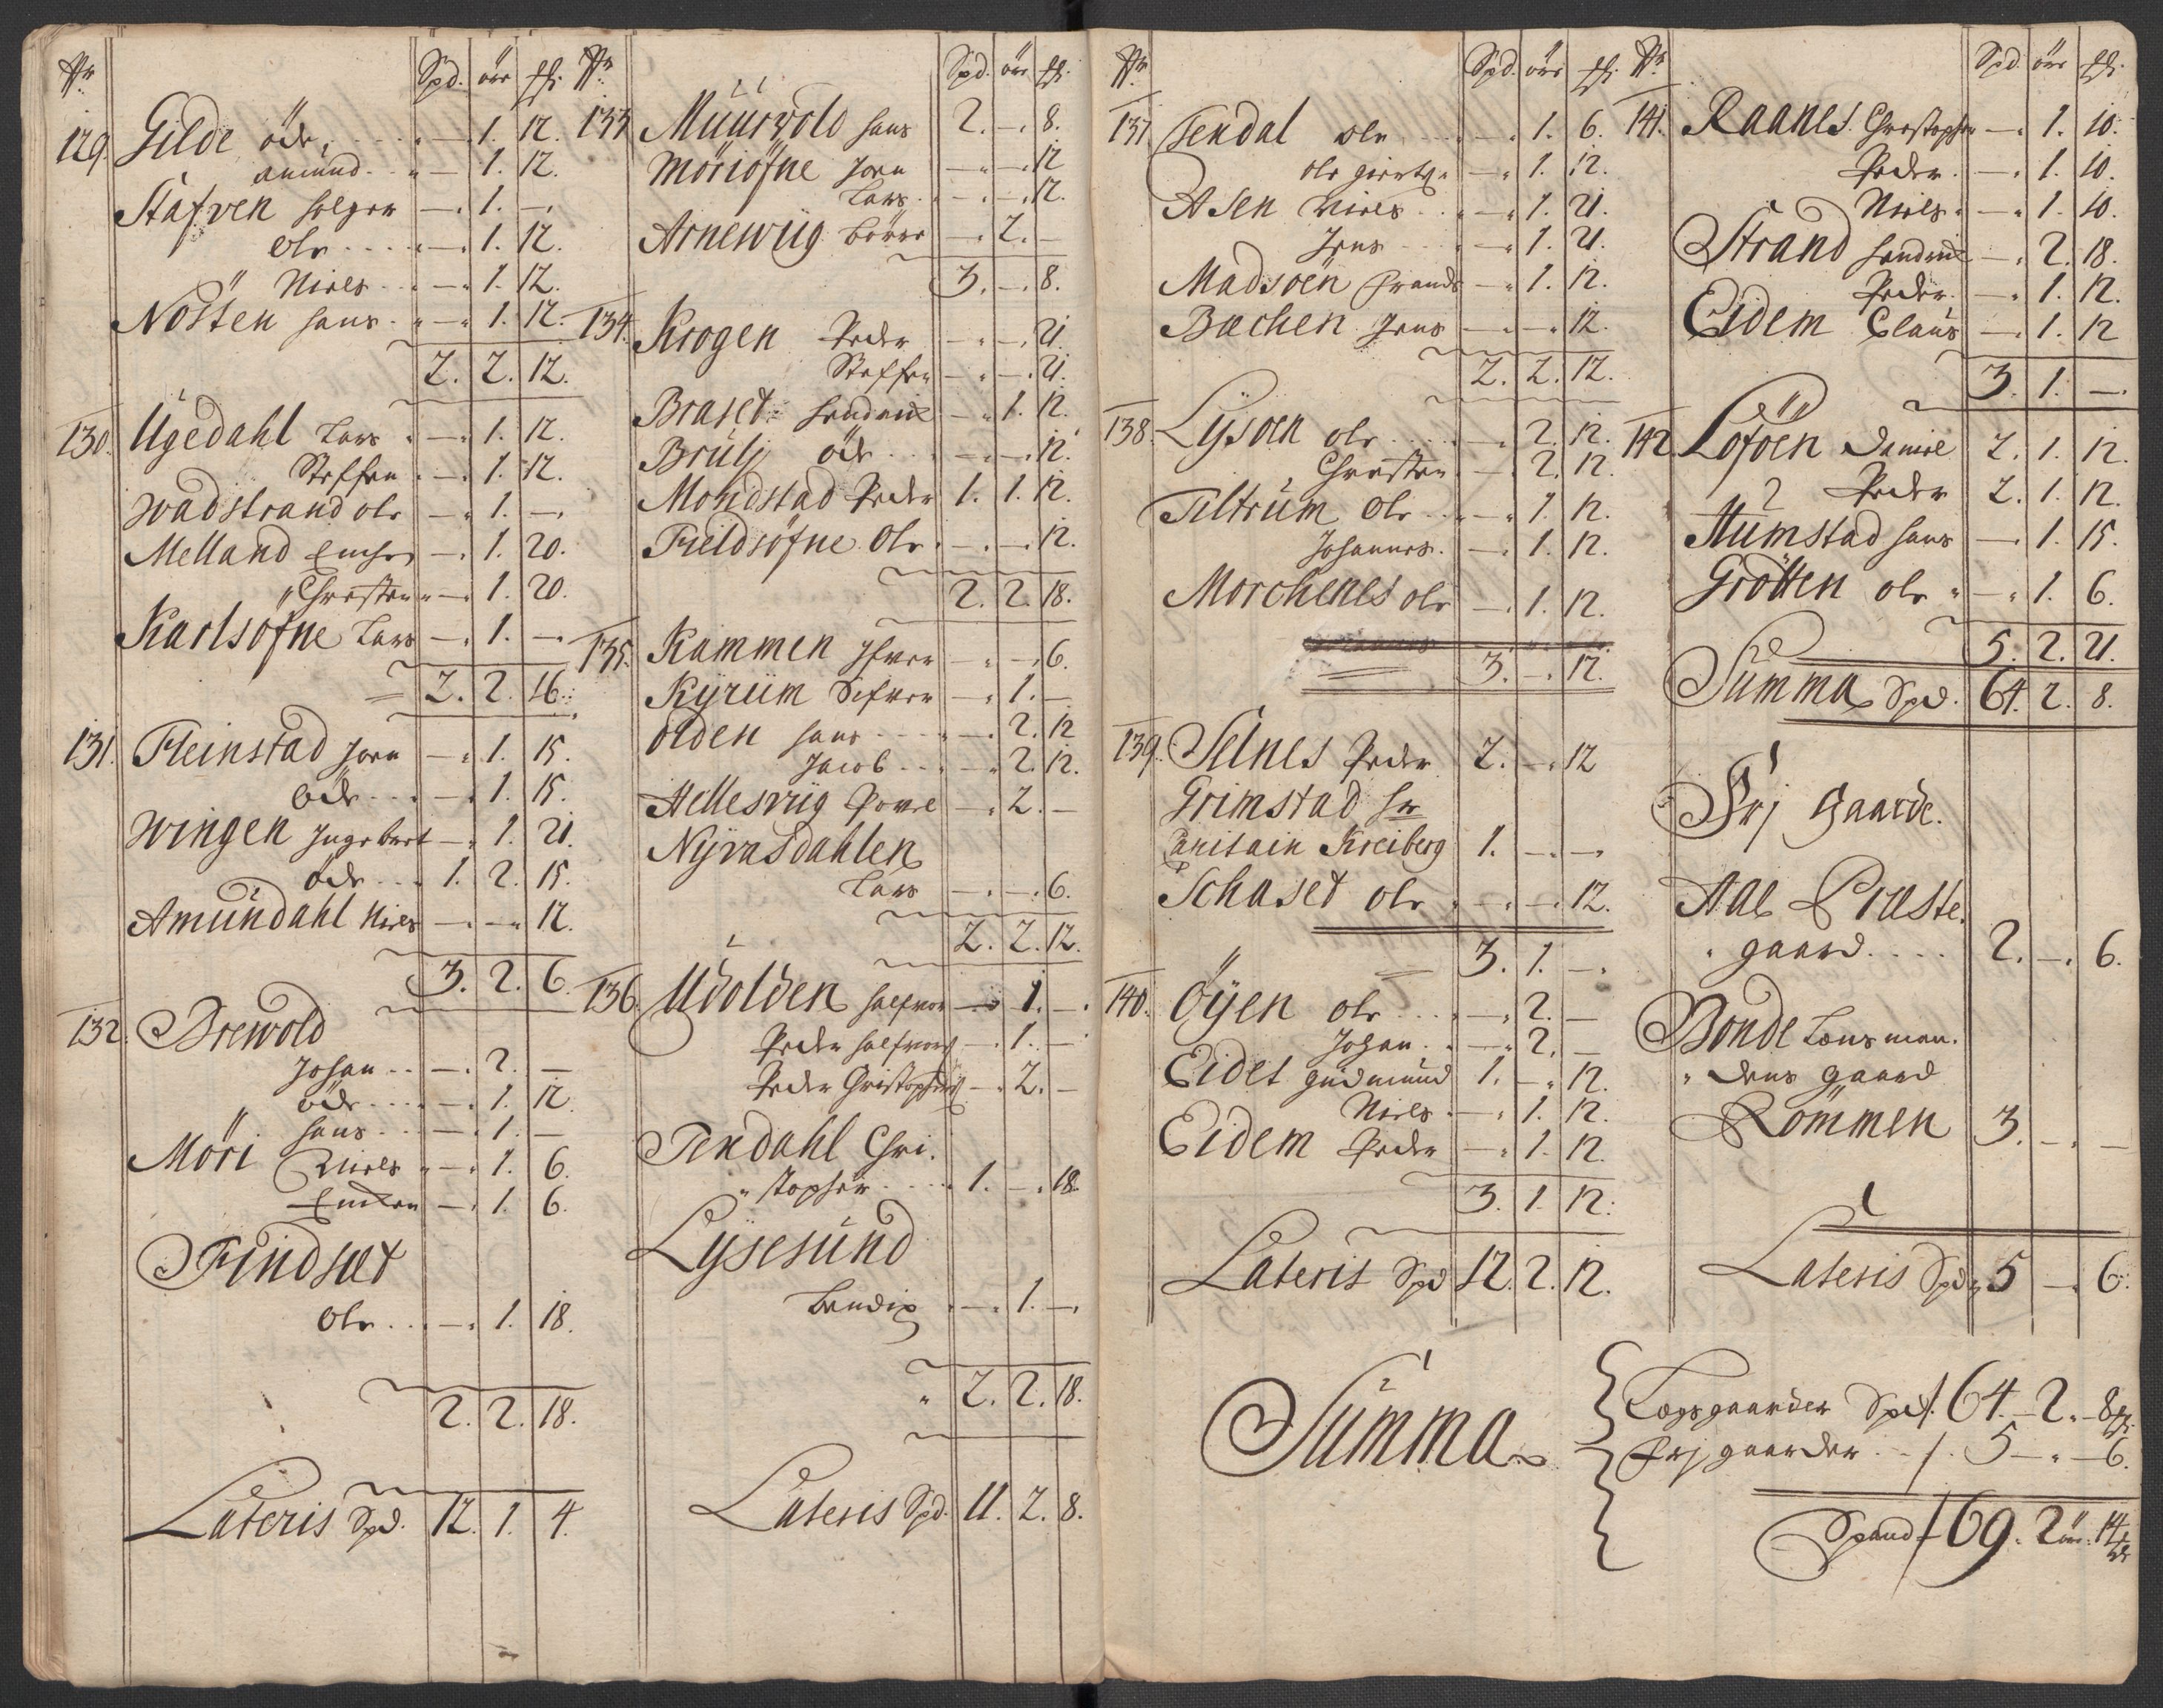 Nr. Spd. öre ſh.
129. Gilde öde, . . . - 1. 12.
amund . . - 1. 12.
Stafven Holger - 1. -
Ole . . . . - 1. 12.
Niels . . - 1. 12.
Nösten Hans . - 1. 12.
2. 2. 12.
130. Ugedahl Lars - 1. 12.
Steffen - 1. 12.
Wadstrand Ole - 1. -
Melland - 1. 20.
Christen - 1. 20.
Karlsöfne Lars - 1. -
2. 2. 16.
131. Fleinstad Joen - 1. 15.
öde . . - 1. 15.
Wingen Ingebret - 1. 21.
öde . . 1. 2. 15.
Amundahl Niels - - 12.
3. 2. 6.
132. Brewold
Johan . . - 2. -
öde . . . - 1. 12.
Hans . . - 1. -
Möri Niels - 1. 6.
- 1. 6.
Findsæt
Ole . . - 1. 18.
2. 2. 18.
Lateris Spd. 12. 1. 4.
Nr. Spd. öre ſh.
133 Muurvold Hans 2. - 8.
Möriöfne Joen - - 12
Lars . - - 12.
Arnewiig Börre - 2. -
3. - 8.
134. Krogen Peder - - 21.
Steffen - - 21.
Braset Hendrich - 1. 12.
Brulj öde . . - - 12.
Mondstad Peder 1. 1. 12.
Fieldsöfne Ole . - - 12.
2. 2. 18.
135. Kammen Ifver - - 6.
Kyrum Sifver - 1. -
Olden Hans . . . - 2. 12
Jacob . . - 2. 12.
Hellesviig Povel - 2. -
Nyvasdahlen
Lars - - 6.
2. 2. 12.
136. Udolden Halfvor - 1. -
Peder Halfvors - 1. -
Peder Christophers - 2. -
Tendahl Chri.
stopher . . . 1. - 18
Lysesund
Bendix - 1. -
2. 2. 18.
Lateris Spd. 11. 2. 8.
Nr. Spd. öre ſh.
137 Tendal Ole . . . - 1. 6.
Ole - 1. 12.
Asen Niels . . - 1. 21.
Jens . . - 1. 21.
Madsöen Frands - 1. 12.
Bachen Jens - - 12.
2. 2. 12.
138. Lysöen Ole . . . - 2. 12.
Christen - 2. 12.
Tiltrum Ole . . - 1. 12.
Johannes . - 1. 12.
Morchenes Ole - 1. 12.
3. - 12.
139. Selnes Peder 2. - 12
Grimstad Hr
Capitain Kreiberg 1. - -
Schaset Ole - - 12.
3. 1. -
140. Öyen Ole . . . - 2. -
Johan . - 2. -
Eidet Gudmund 1. - 12.
Niels . - 1. 12.
Eidem Peder - 1. 12.
3. 1. 12.
Lateris Spd 12. 2. 12.
Nr. Spd öre ſh.
141. Raanes Christopher - 1. 10.
Peder . - 1. 10.
Niels . - 1. 10.
Strand Hendrich - 2. 18.
Peder . - 1. 12.
Eidem Claus - 1. 12
3. 1. -
142 Löföen Daniel 2. 1. 12.
Peder 2. 1. 12.
Humstad Hans - 1. 15.
Grötten Ole - 1. 6.
5. 2. 21.
Summa Spd. 64. 2. 8.
Frj Gaarde.
Aae Præste.
gaard . . . . 2. - 6.
Bonde Lensman.
dens gaard
Römmen 3. - -
Lateris Spd 5 - 6.
Summa
Lægsgaarder Spd. 64. - 2. - 8 ſh.
Frj gaarder . . . 5 - - 6.
Spand 69. 2 öre. 14